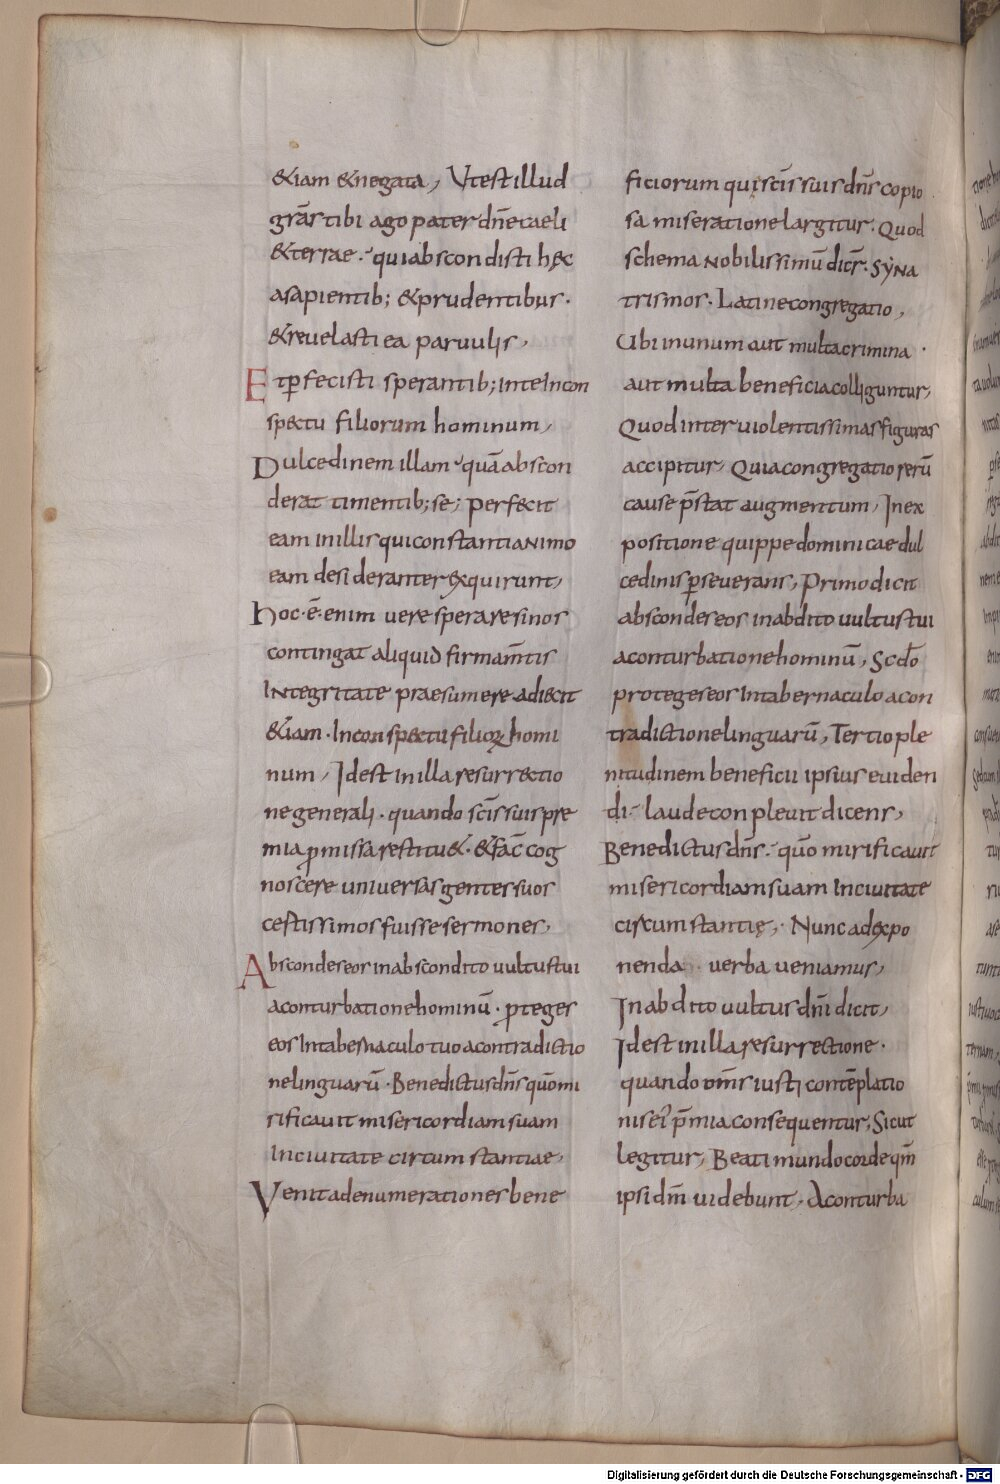 &iam &negata, Ut est illud
grās tibi ago pater dn̄e caeli
& terrae · quia abscondisti hęc
a sapientib; & prudentibus ·
& reuelasti ea paruulis,
Et ꝑfecisti sperantib; in te in con
spectu filiorum hominum,
Dulcedinem illam quā abscon
derat timentib; se; perfecit
eam in illis qui constanti animo
eam desideranter exquirunt,
hoc · ē · enim uere sperare si nos
contingat aliquid firmam̄tis
integritate praesumere adiecit
&iam · In conspectu filioꝝ homi
num, Id est in illa resurrectio
ne generali · quando sc̄is suis pre
mia ꝓmissa restitu& · & fac̄ cog
noscere uniuersas gentes suos
cestissimos fuisse sermones,
Abscondes eos in abscondito uultus tui
a conturbatione hominū · ꝓteges
eos in tabernaculo tuo a contradictio
ne linguarū · Benedictus dn̄s quō mi
rificauit misericordiam suam
in ciuitate circum stantiae,
Venit ad enumerationes bene
ficiorum qui sc̄is suis dn̄s copio
sa miseratione largitur · Quod
schema nobilissimū dicr̄ · syna
trismos · Latine congregatio,
Ubi in unum aut multa crimina ·
aut multa beneficia colliguntur,
Quod inter uiolentissimas figuras
accipitur, Quia congregatio rerū
cause p̄stat augmentum, In ex
positione quippe dominicae dul
cedinis ꝑseuerans, Primo dicit
abscondes eos in abdito uultus tui
a conturbatione hominū, Scd̄o
proteges eos in tabernaculo a con
tradictione linguarū, Tertio ple
nitudinem beneficii ipsius euiden
di · laude conpleuit dicens,
Benedictus dn̄s · quō mirificauit
misericordiam suam in ciuitate
circumstantię, · Nunc ad expo
nenda uerba ueniamus,
In abdito uultus dn̄i dicit,
Id est in illa resurrectione ·
quando om̄s iusti contēplatio
nis ei p̄mia consequentur, Sicut
legitur, Beati mundo corde qm̄
ipsi dm̄ uidebunt, A conturba
Digitalisierung gefördert durch die Deutsche Forschungsgemeinschaft - DFG